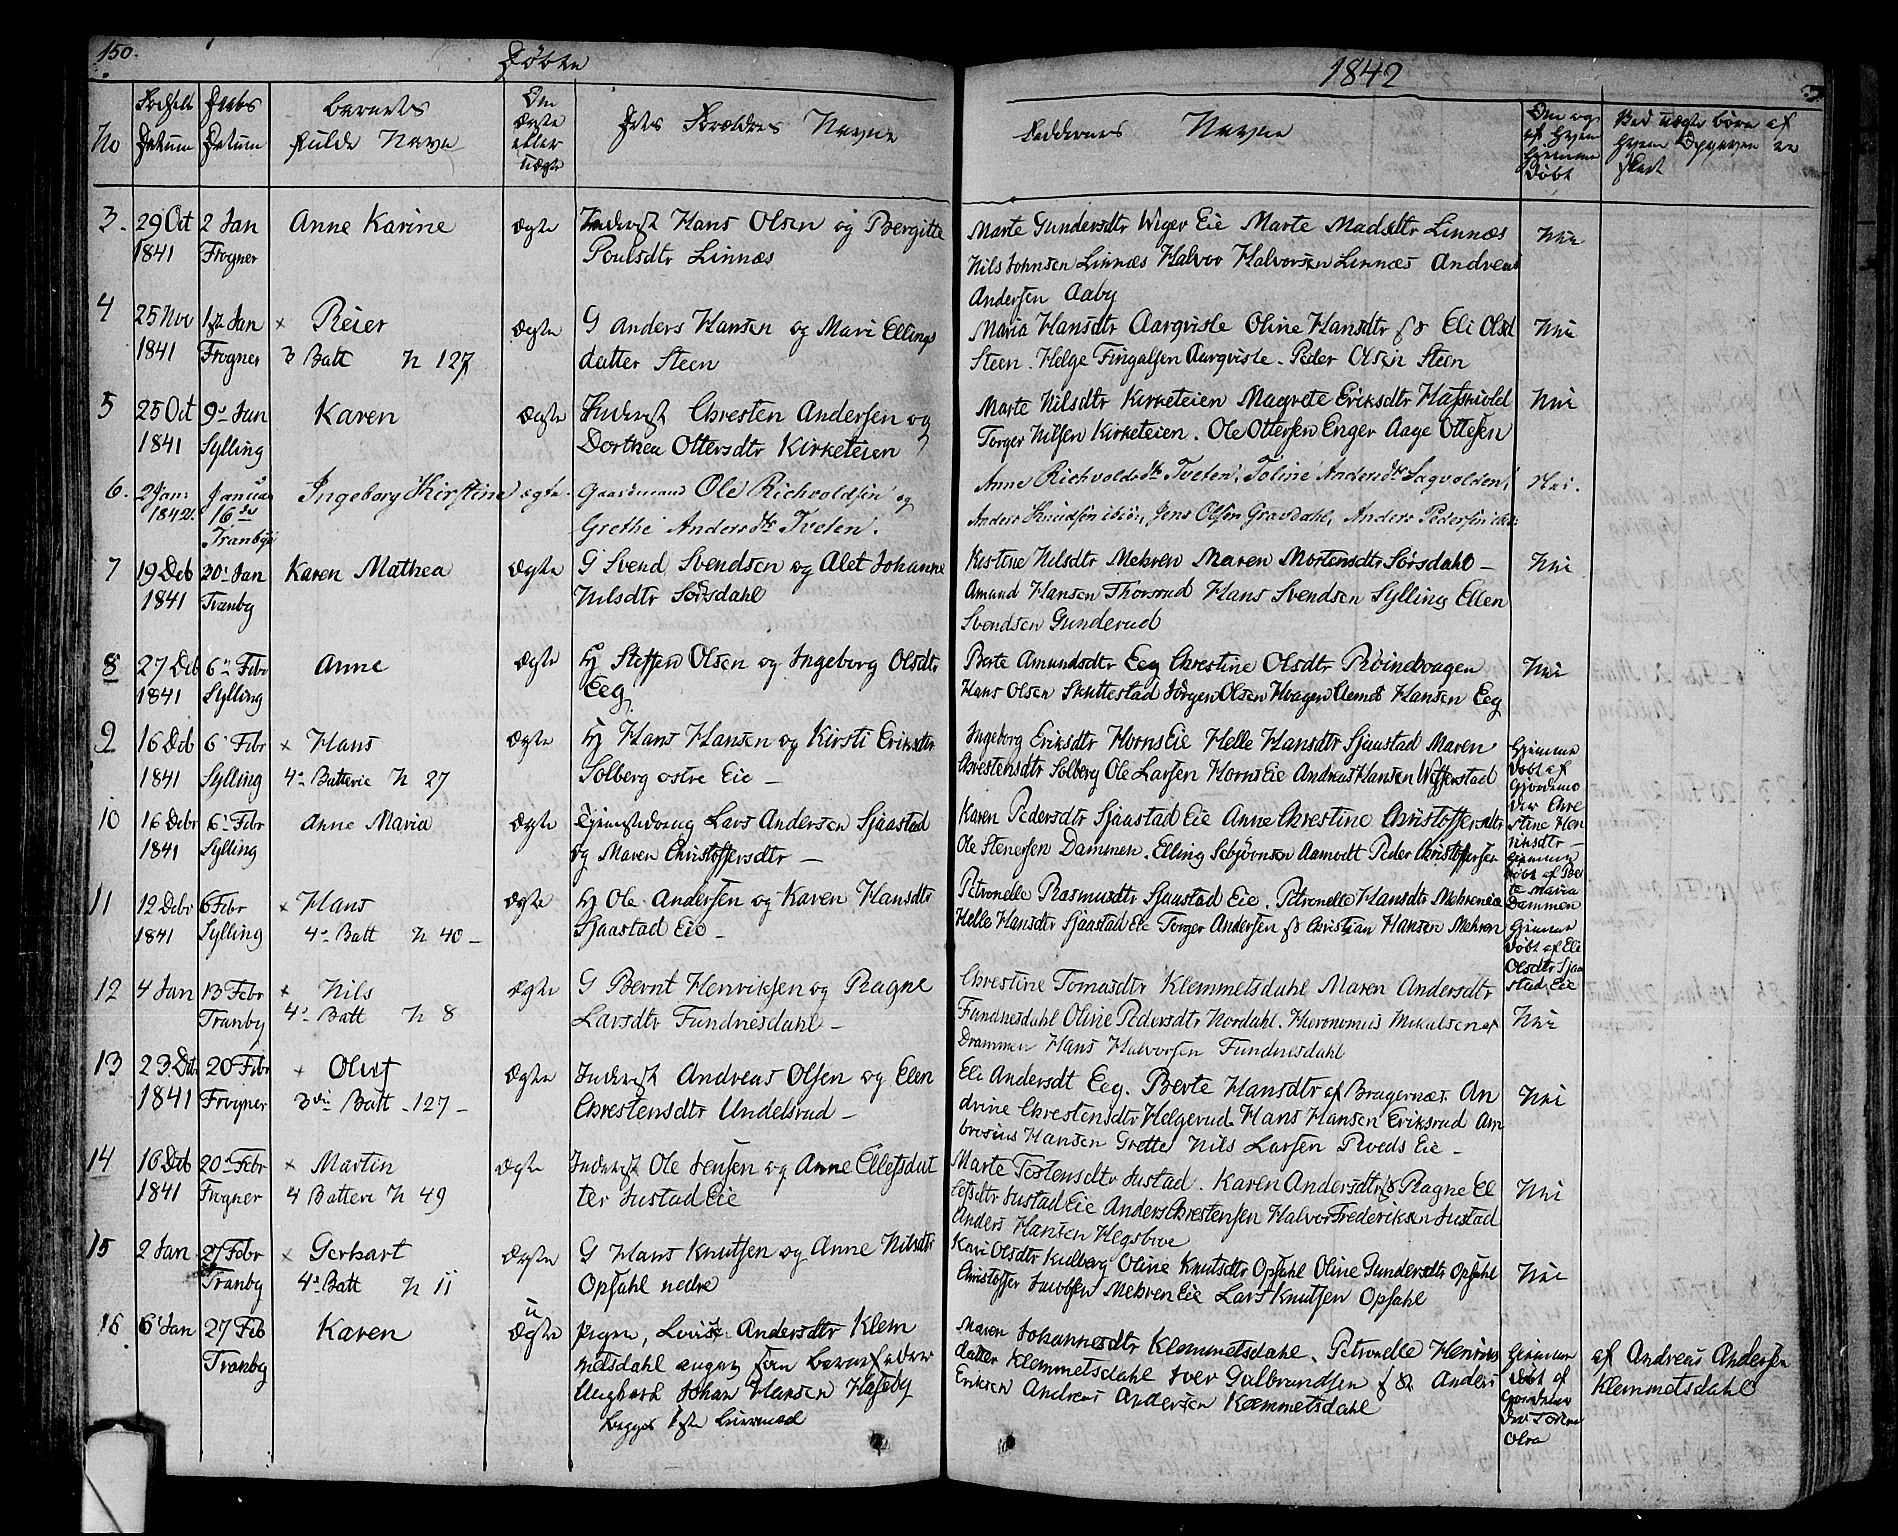 150.
Døbte
1842
No
Fødsels Datum
Daabs Datum
Barnets fulde Navn
Om ægte eller uægte
Dets Forældres Navne
Faddernes Navne
Døbt
Ved uægte børn af
3. 29 Oct 2 Jan Anne Karine ægte Inderst Hans Olsen og Bergitte Marte Gundersdtr Wiger Eie Marte Madsdtr Linnæs Nei
1841 Frogner Poulsdtr Linnæs Nils Johnsen Linnæs Halvor Halvorsen Linnæs Andreas
Andersen Aaby
4 25 Nov 1ste Jan × Reier ægte G Anders Hansen og Mari Ellings Maria Hansdtr Aarqvisle Oline Hansdtr Eli Olsd Nei
1841 Frogner 3 Batt N 127 datter Steen Steen. Helge Fingalsen Aarqvisle. Peder Olsen Steen
5 25 Oct 9de Jan Karen ægte Inderst Chresten Andersen og Marte Nilsdtr Kirketeien Magrete Eriksdtr Nei
1841 Sylling Dorthea Ottersdtr Kirketeien Torger Nilsen Kirketeien. Ole Ottersen Enger Aage Ottesen
6. 2 Jan: Januar Ingeborg Kirstine ægte. Gaardmand Ole Richvoldsen og Anne Richvoldsdtr Tveten, Toline Andersdtr Sagvolden, Nei.
1842. 16de Grethe Andersdtr Tveten. Anders Knudsen ibid, Jens Olsen Gravdahl, Anders Pedersen
Tranbye
7 19 Deb 20 Jan Karen Mathea Ægte G Svend Svendsen og Alet Johanne Kistene Nilsdtr Mehren Maren Mortensdtr Sørsdahl – Nei
1841 Tranby Nilsdtr Sørsdahl Amund Hansen Thorsrud Hans Svendsen Sylling Ellen
Svendsen Gunderud
8 27 Deb 6 Febr Anne ægte H Steffen Olsen og Ingeborg Olsdtr Berte Amundsdtr Eeg Chrestine Olsdtr Nei
1841 Sylling Eeg Hans Olsen Skuttestad Jørgen Olsen Hvagen Hansen Eeg
9 16 Deb 6 Febr × Hans ægte H Hans Hansen og Kirsti Eriksdtr Ingeborg Eriksdtr Horns Eie Helle Hansdtr Sjaastad Maren
1841 Sylling 4 Batterie N 27 Solberg østre Eie – Chrestensdtr Solberg Ole Larsen Horns Eie Andreas Hansen
Døbt af
10 16 Debr 6 Febr Anne Maria ægte Lars Andersen Sjaastad Karen Pedersdtr Sjaastad Eie Anne Chrestine Christoffersdtr
1841 Sylling og Maren Christoffersdtr – Ole Stenersen Dammen. Elling Aamodt Peder Christoffersen
døbt af
Maria
Dammen
11 12 Debr 6 Febr × Hans ægte H Ole Andersen og Karen Hansdtr Petronelle Rasmusdtr Sjaastad Eie. Petronelle Hansdtr Mehren Eie
1841 Sylling 4 Batt N 40 – Sjaastad Eie – Helle Hansdtr Sjaastad Eie Torger Andersen Christian Hansen Mehren
døbt af Eli
Olsdtr Sjaa
stad Eie
12 4 Jan 13 Febr × Nils ægte G Bernt Henriksen og Ragne Chrestine Tomasdtr Klemmetsdahl Maren Andersdtr
Tranby 4 Batt N 8 Larsdtr Fundnesdahl – Fundnesdahl Oline Pedersdtr Nordahl. Hieronomus Mikalsen af Nei
Drammen Hans Halvorsen Fundnesdahl
13 23 Deb 20 Febr × Oluf Ægte Inderst Andreas Olsen og Elen Eli Andersdt Eeg. Berte Hansdtr af Bragernæs An Nei
1841 Frogner 3die Batt – 127 – Chrestensdtr Undelsrud – drine Chrestensdtr Helgerud Hans Hansen Eriksrud Am
brosius Hansen Grette Nils Larsen Eie –
14 16 Deb 20 Febr × Martin ægte Inderst Ole Jensen og Anne Ellefsdat Marte Tostensdtr Justad. Karen Andersdtr Ragne El Nei
1841 Frogner 4 Batteri N 49 ter Justad Eie lefsdtr Justad Eie Anders Chrestensen Halvor Frederiksen Justad
Anders Hansen
15 2 Jan 27 Febr × Gerhart Ægte G Hans Knutsen og Anne Nilsdtr Kari Olsdtr Kulberg Oline Knutsdtr Opsahl Oline Gundersdtr Opsahl Nei
Tranby 4 Batt N 11 Opsahl nedre Christoffer Jacobsen Mehren Eie Lars Knutsen Opsahl
16 6 Jan 27 Feb Karen u Ægte Pigen, Lovise Andersdtr Klem Maren Johannesdtr Klemmetsdahl. Petronelle Henriks
Tranby metsdahl angav som Barnefader datter Klemmetsdahl Iver Gulbrandsen Anders
Ungkarl Johan Hansen Haseby Eriksen Andreas Andersen Klemmetsdahl
Begges
døbt af
Olva
af Andreas Andersen
Klemmetsdahl